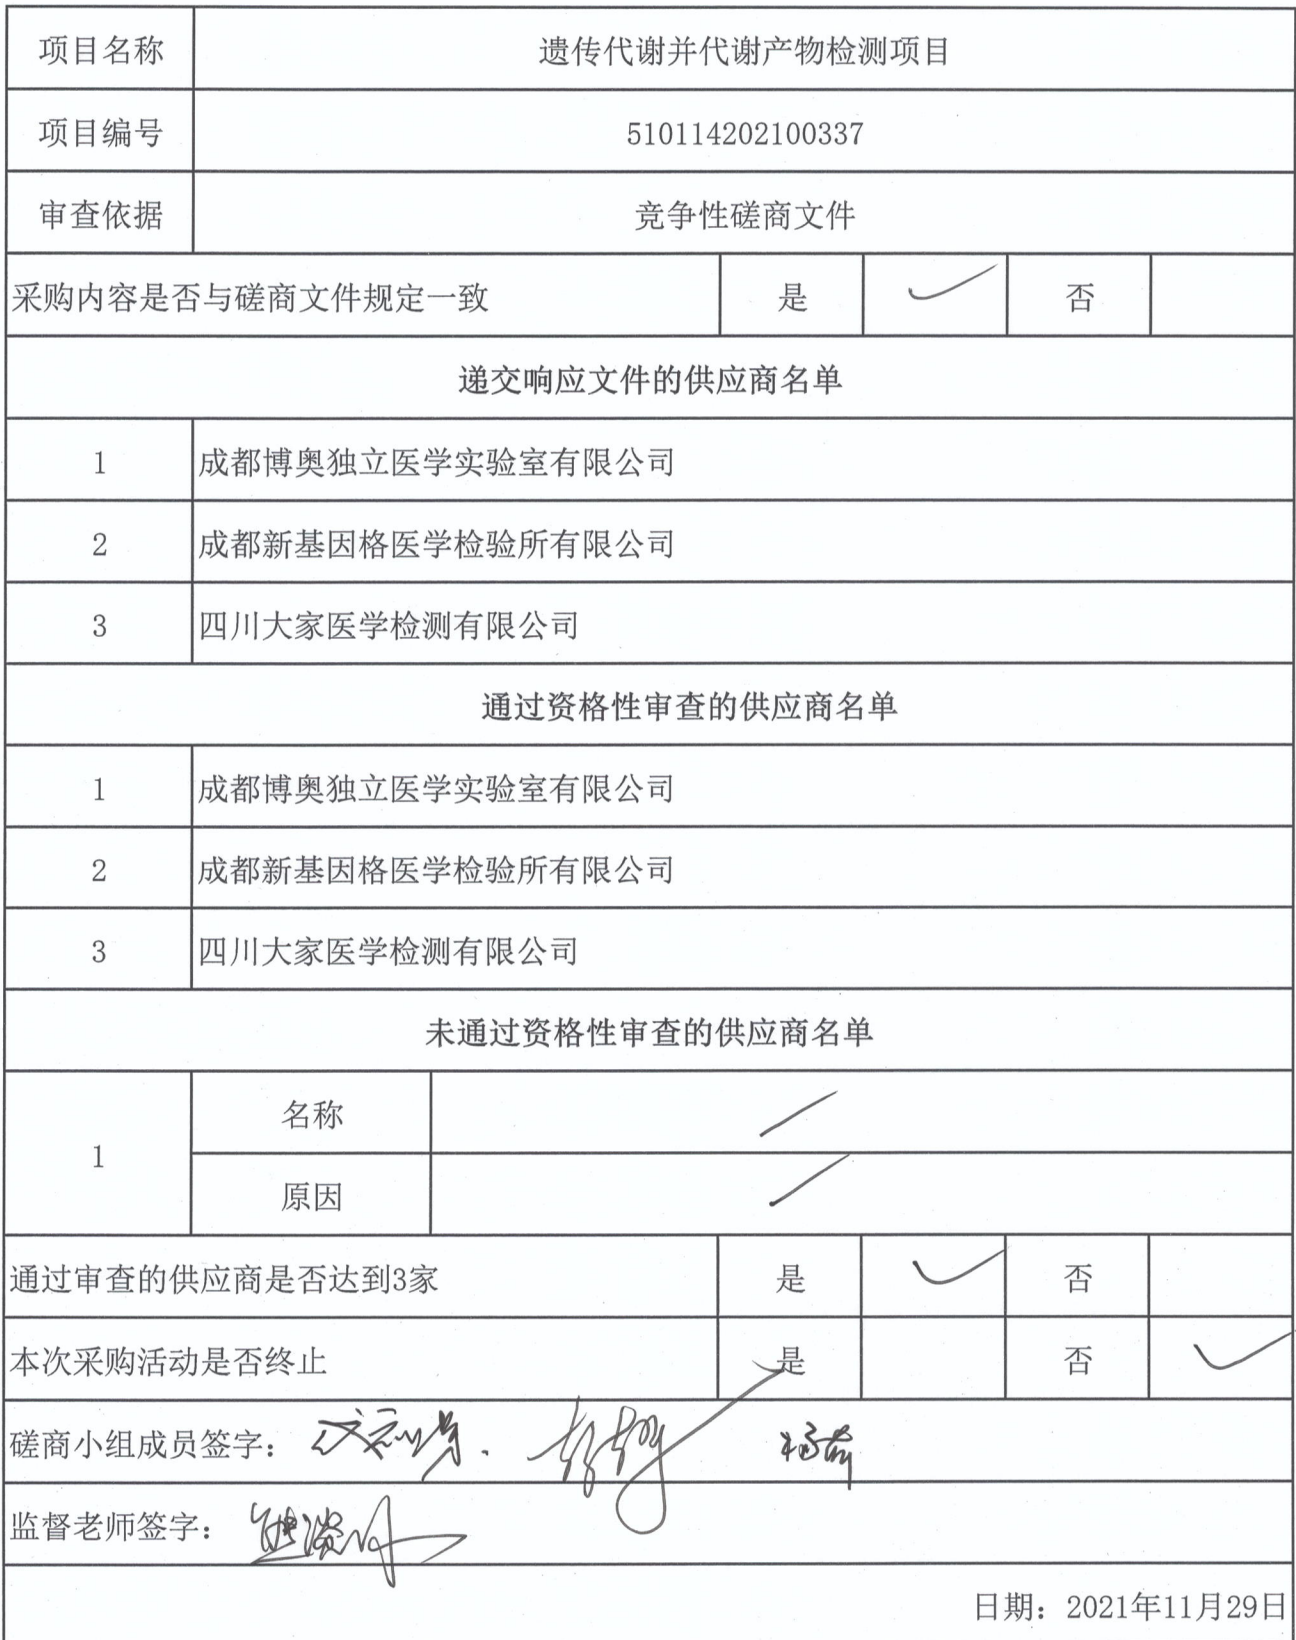 项目名称 遗传代谢并代谢产物检测项目
项目编号 510114202100337
审查依据 竞争性磋商文件
采购内容是否与磋商文件规定一致 是 ✓ 否
递交响应文件的供应商名单
1 成都博奥独立医学实验室有限公司
2 成都新基因格医学检验所有限公司
3 四川大家医学检测有限公司
通过资格性审查的供应商名单
1 成都博奥独立医学实验室有限公司
2 成都新基因格医学检验所有限公司
3 四川大家医学检测有限公司
未通过资格性审查的供应商名单
1 名称 /
原因 /
通过审查的供应商是否达到3家 是 ✓ 否
本次采购活动是否终止 是 否 ✓
磋商小组成员签字：
监督老师签字：
日期：2021年11月29日